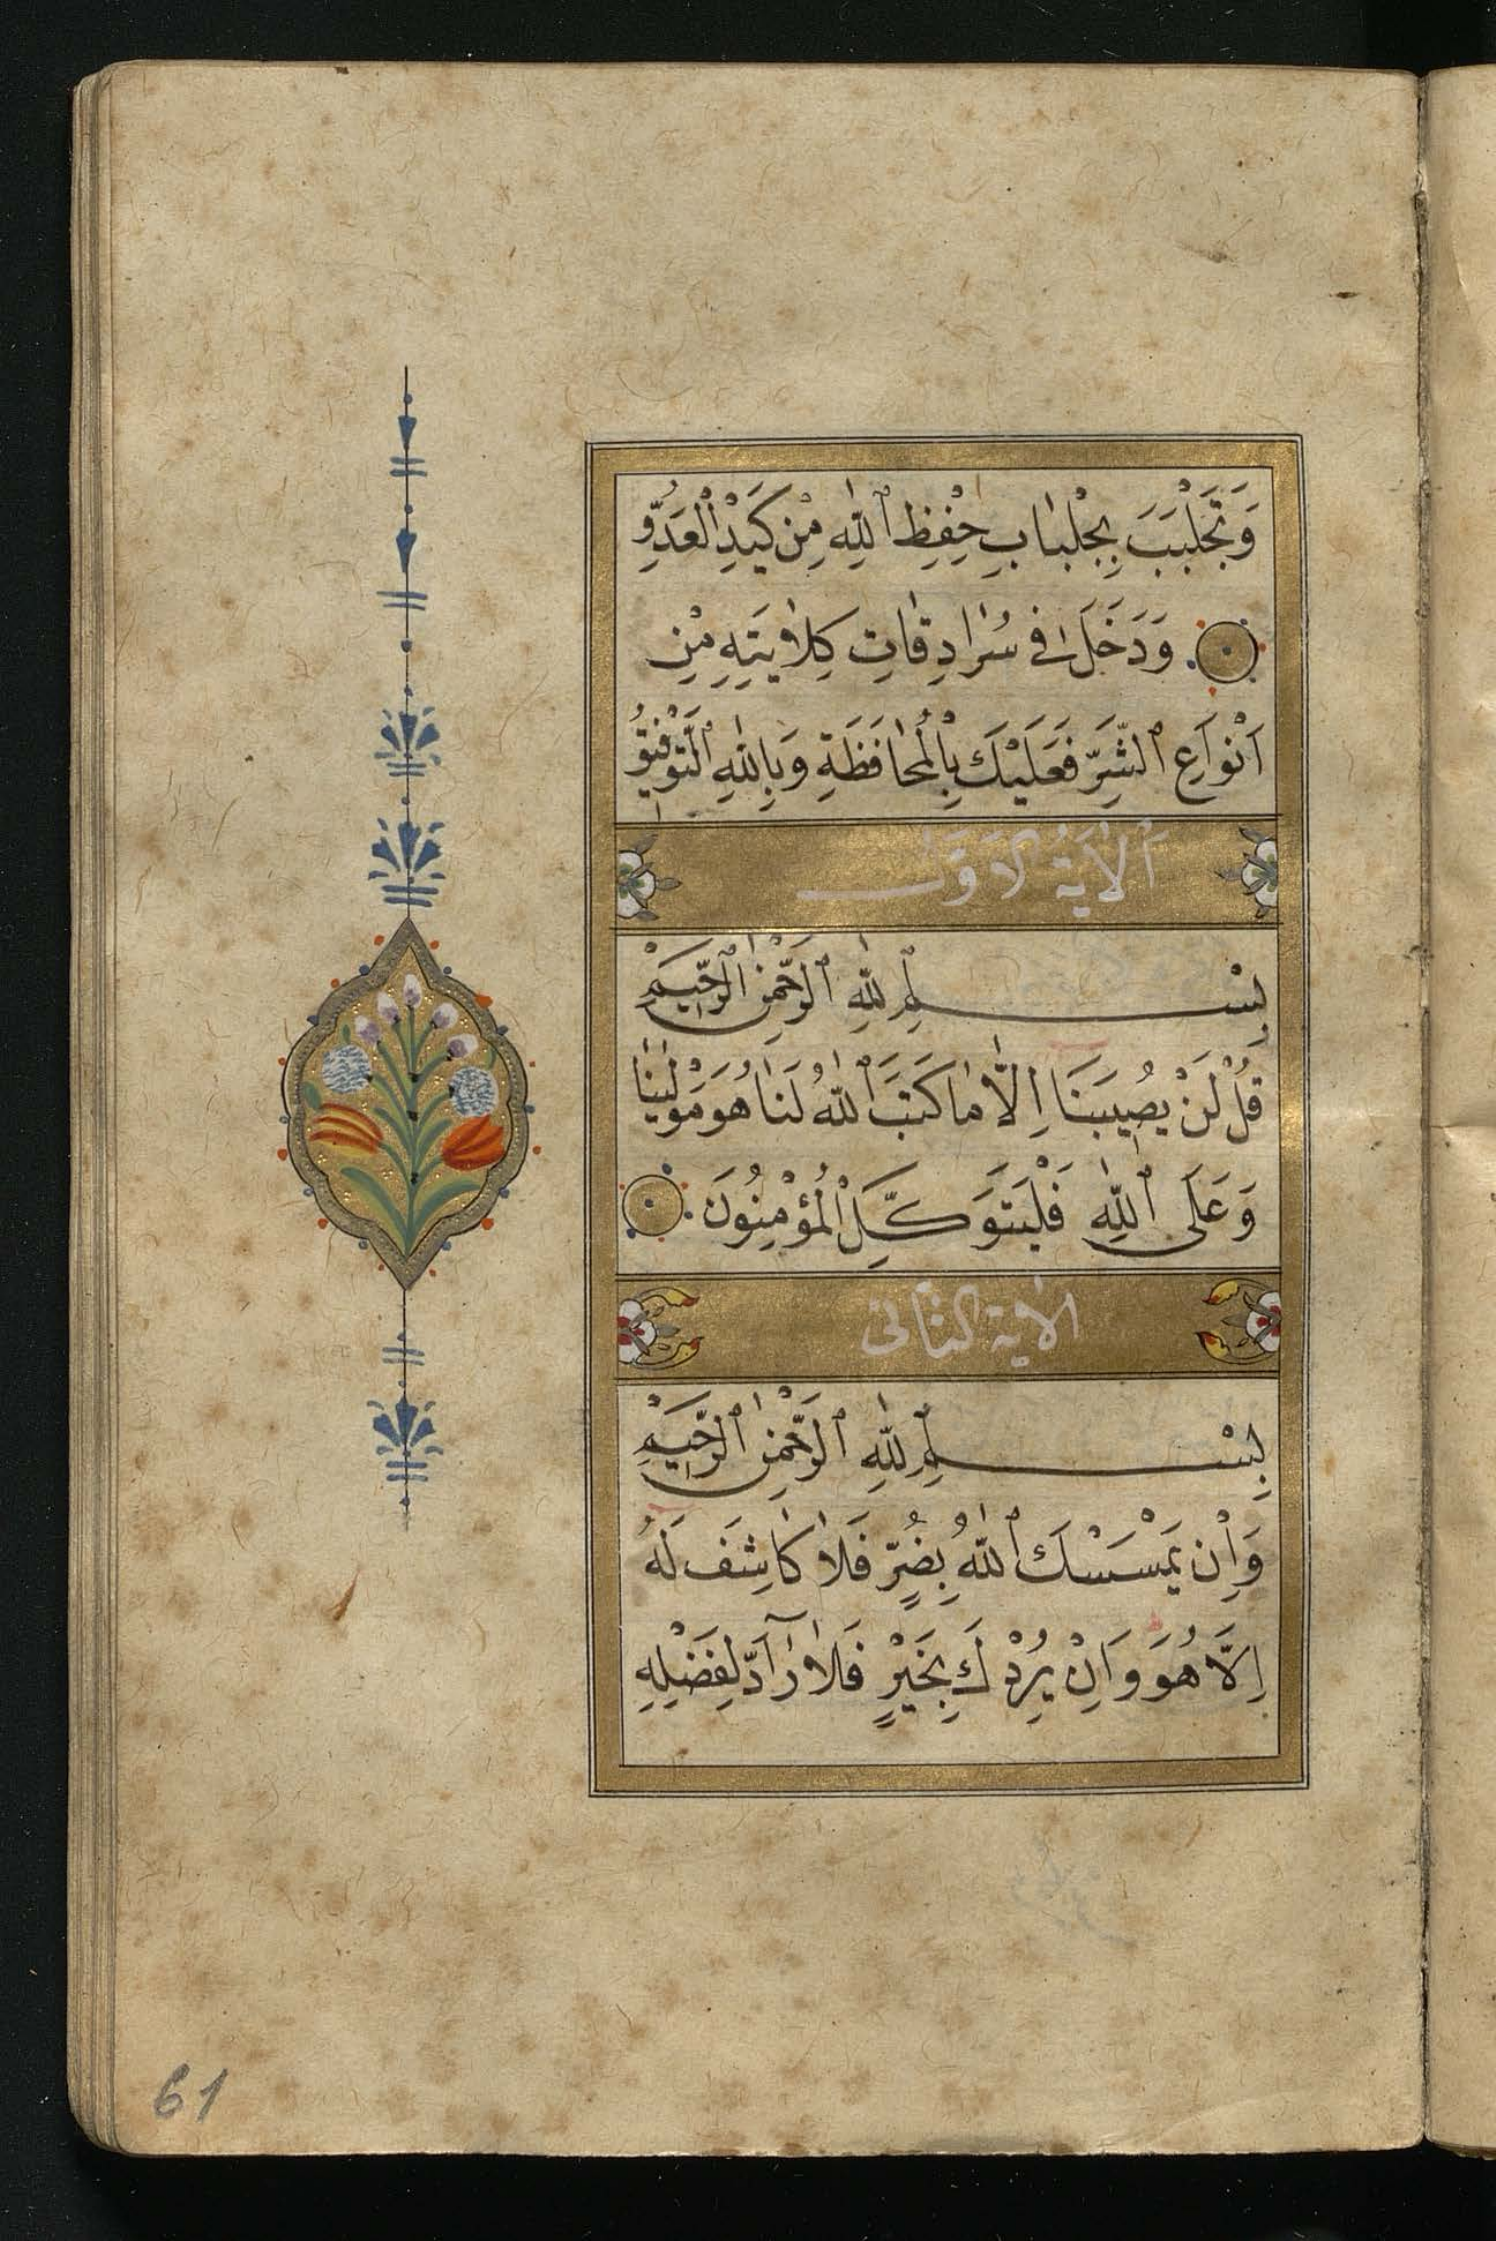 وَتَجَلْبَبَ بِجِلْبَابِ حِفْظِ ٱللّٰهِ مِنْ كَيْدِ الْعَدُوِّ
وَدَخَلَ فِى سُرَادِقَاتِ كِلَايَتِهِ مِنْ
اَنْوَاعِ ٱلشَّرِّ فَعَلَيْكَ بِالْمُحَافَظَةِ وَبِاللّٰهِ ٱلتَّوْفِيقُ
ٱلْاٰيَةُ الْاَوَّلُ
بِسْمِ ٱللّٰهِ ٱلرَّحْمٰنِ ٱلرَّحِيمِ
قُلْ لَنْ يُصِيبَنَا اِلَّا مَا كَتَبَ ٱللّٰهُ لَنَا هُوَ مَوْلٰينَا
وَعَلَى ٱللّٰهِ فَلْيَتَوَكَّلِ الْمُؤْمِنُونَ
الاية الثانى
بِسْمِ ٱللّٰهِ ٱلرَّحْمٰنِ ٱلرَّحِيمِ
وَاِنْ يَمْسَسْكَ ٱللّٰهُ بِضُرٍّ فَلَا كَاشِفَ لَهُ
اِلَّا هُوَ وَاِنْ يُرِدْكَ بِخَيْرٍ فَلَا رَآدَّ لِفَضْلِهِ
61